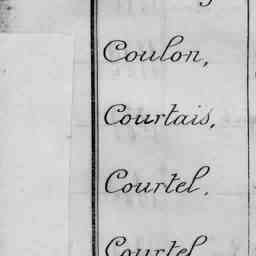 Coulon,
Courtais,
Courtel,
Courtel